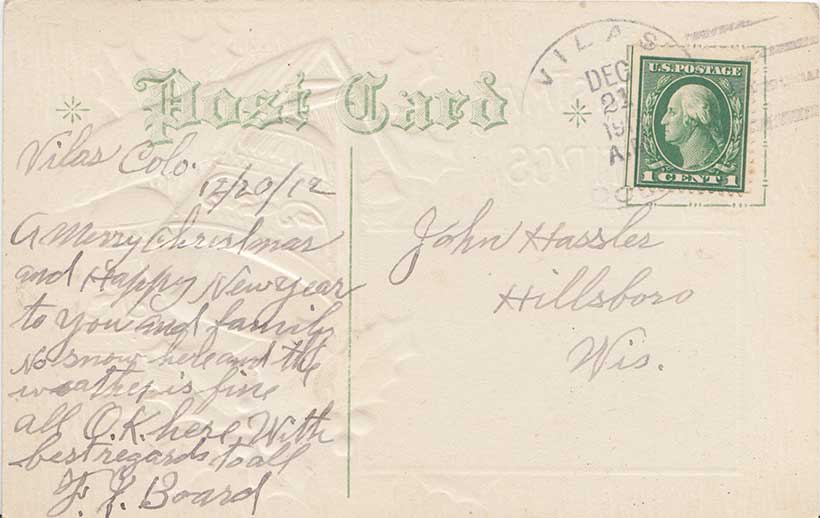 Post Card
VILAS
DEC
21
19
A.
U.S. POSTAGE
1 CENT 1
Vilas Colo.
12/20/12
A Merry Christmas
and Happy New Year
to you and family
No snow here and the
weather is fine
all O.K. here With
best regards to all
F. L. Board
John Hassler
Hillsboro
Wis.